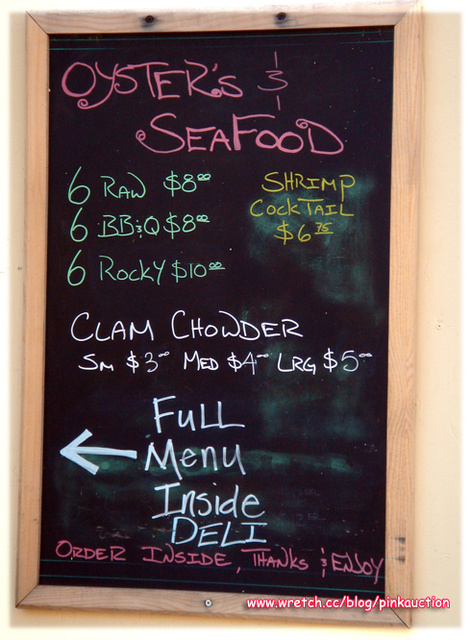 OYSTER'S &
SEAFOOD
6 RAW $8.00
6 BB&Q $8.00
6 ROCKY $10.00
SHRIMP
COCKTAIL
$6.75
CLAM CHOWDER
SM $3.00 MED $4.00 LRG $5.00
FULL
Menu
Inside
DELI
ORDER INSIDE, THANKS & ENJOY
www.wretch.cc/blog/pinkauction